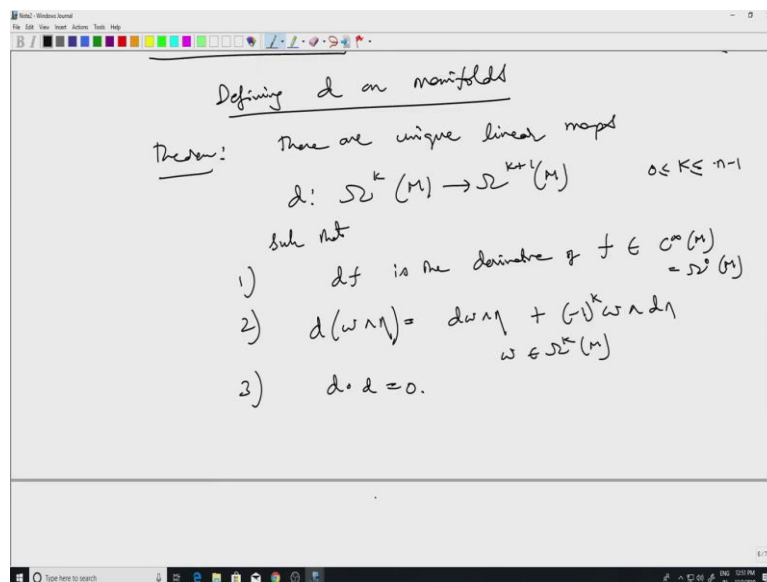 Note2 - Windows Journal
File Edit View Insert Actions Tools Help
Defining d on manifolds
Theorem: There are unique linear maps
d: Ω^k (M) → Ω^{k+1} (M) 0 ≤ k ≤ n-1
such that
1) df is the derivative of f ∈ C^∞ (M)
= Ω^0 (M)
2) d(ω ∧ η) = dω ∧ η + (-1)^k ω ∧ dη
ω ∈ Ω^k (M)
3) d∘d = 0.
6/7
Type here to search
ENG 12:51 PM